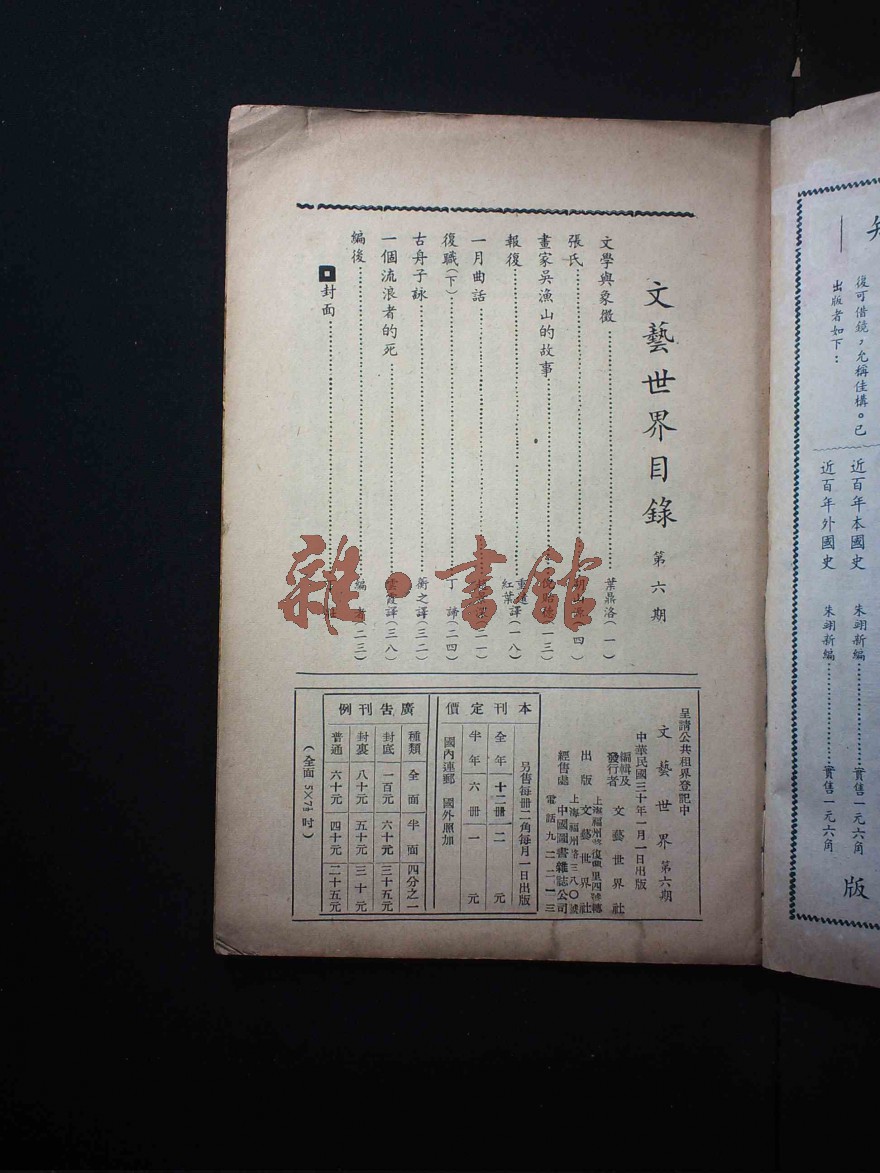 文藝世界目錄 第六期
文學與象徵 葉鼎洛(一)
張氏 (四)
畫家吳漁山的故事 (一三)
報復 紅葉 譯(一八)
一月曲話 (二一)
復職(下) 丁諦(二四)
古舟子詠 衡之譯(三二)
一個流浪者的死 雲霞譯(三八)
編後 編者(二三)
封面
呈請公共租界登記中
文藝世界 第六期
中華民國三十年一月一日出版
編輯及發行者 文藝世界社
上海福州路復興里四號轉
出版 文藝世界社
上海福州路三八〇號
經售處 中國圖書雜誌公司
電話九二二一三
本刊定價
另售每冊二角每月一日出版
全年 十二冊 二元
半年 六冊 一元
國內連郵 國外照加
廣告刊例
種類 全面 半面 四分之一
封底 一百元 六十元 三十五元
封裏 八十元 五十元 三十元
普通 六十元 四十元 二十五元
(全面 5×7½吋)
後可借鏡,允稱佳構。已
出版者如下:
近百年本國史 朱翊新編 實售一元六角
近百年外國史 朱翊新編 實售一元六角
版
雜·書館